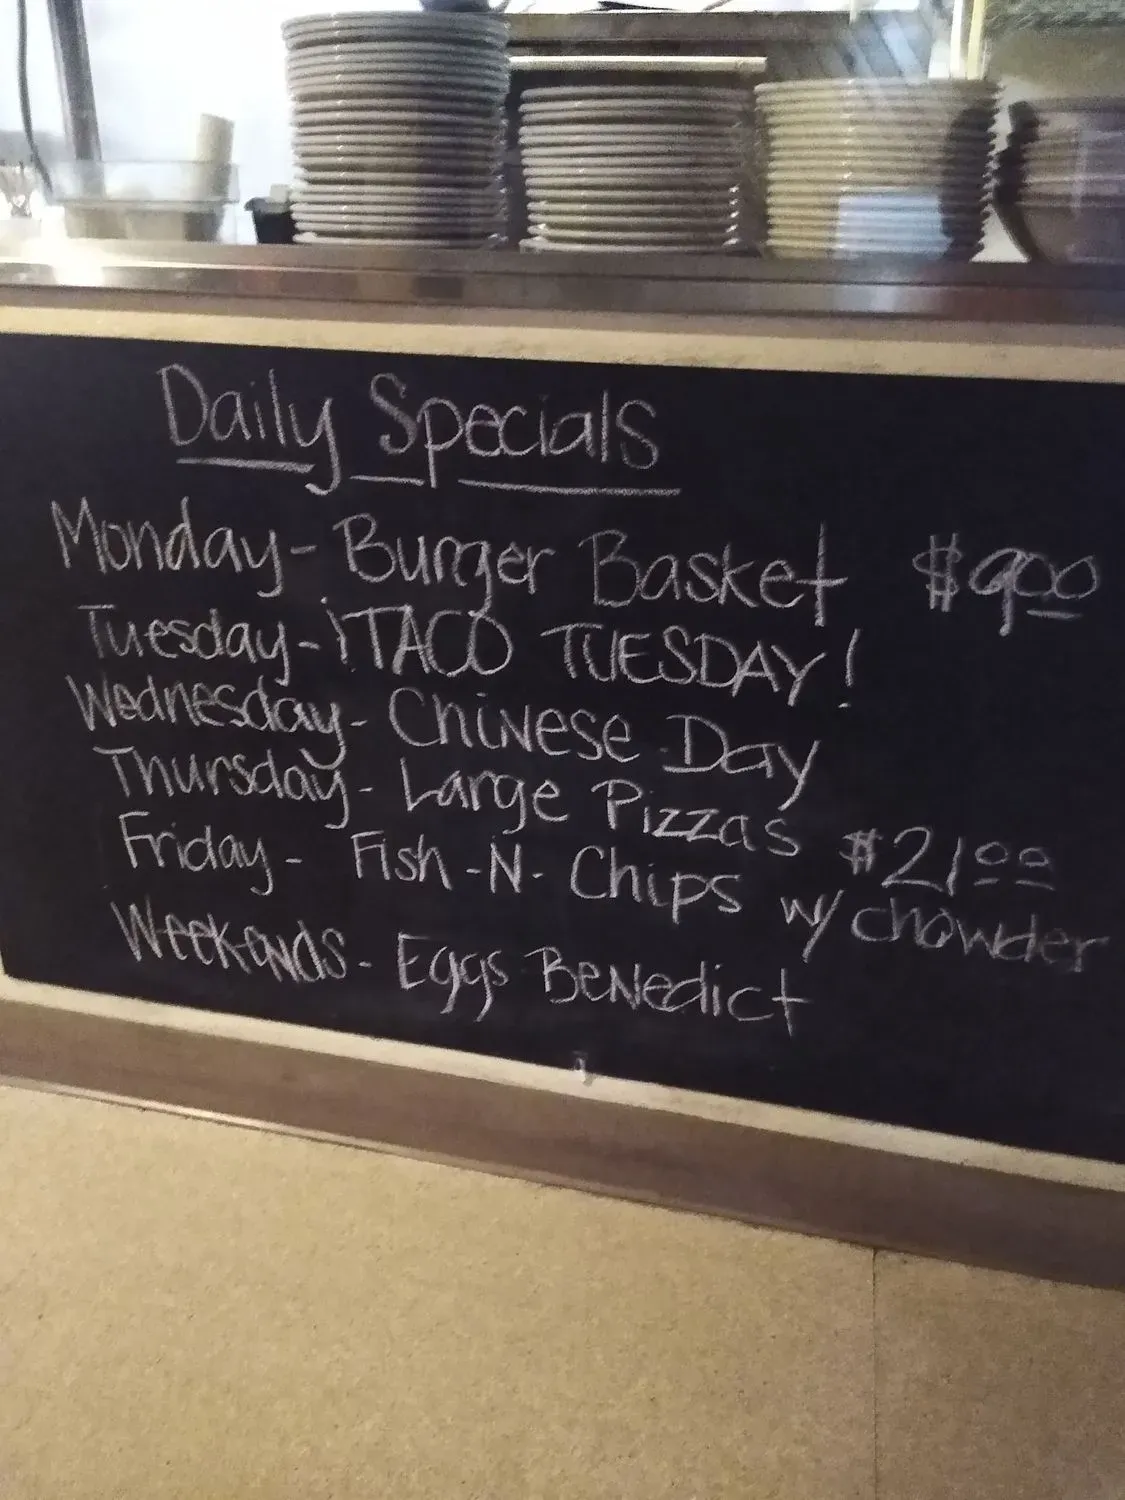 Daily Specials
Monday - Burger Basket $9.00
Tuesday - ¡TACO TUESDAY!
Wednesday - Chinese Day
Thursday - Large Pizzas $21.00
Friday - Fish-N-Chips w/ chowder
Weekends - Eggs Benedict